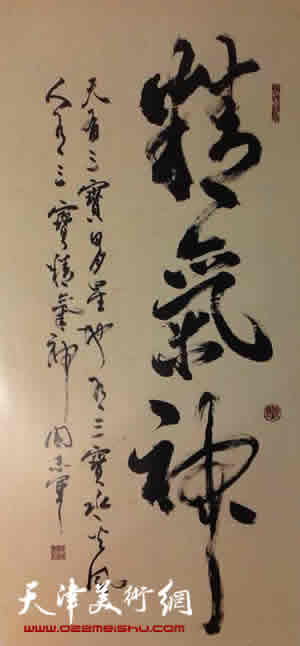 精氣神
天有三寶日月星地有三寶水火風
人有三寶精氣神 周志軍
天津美術網
www.022meishu.com